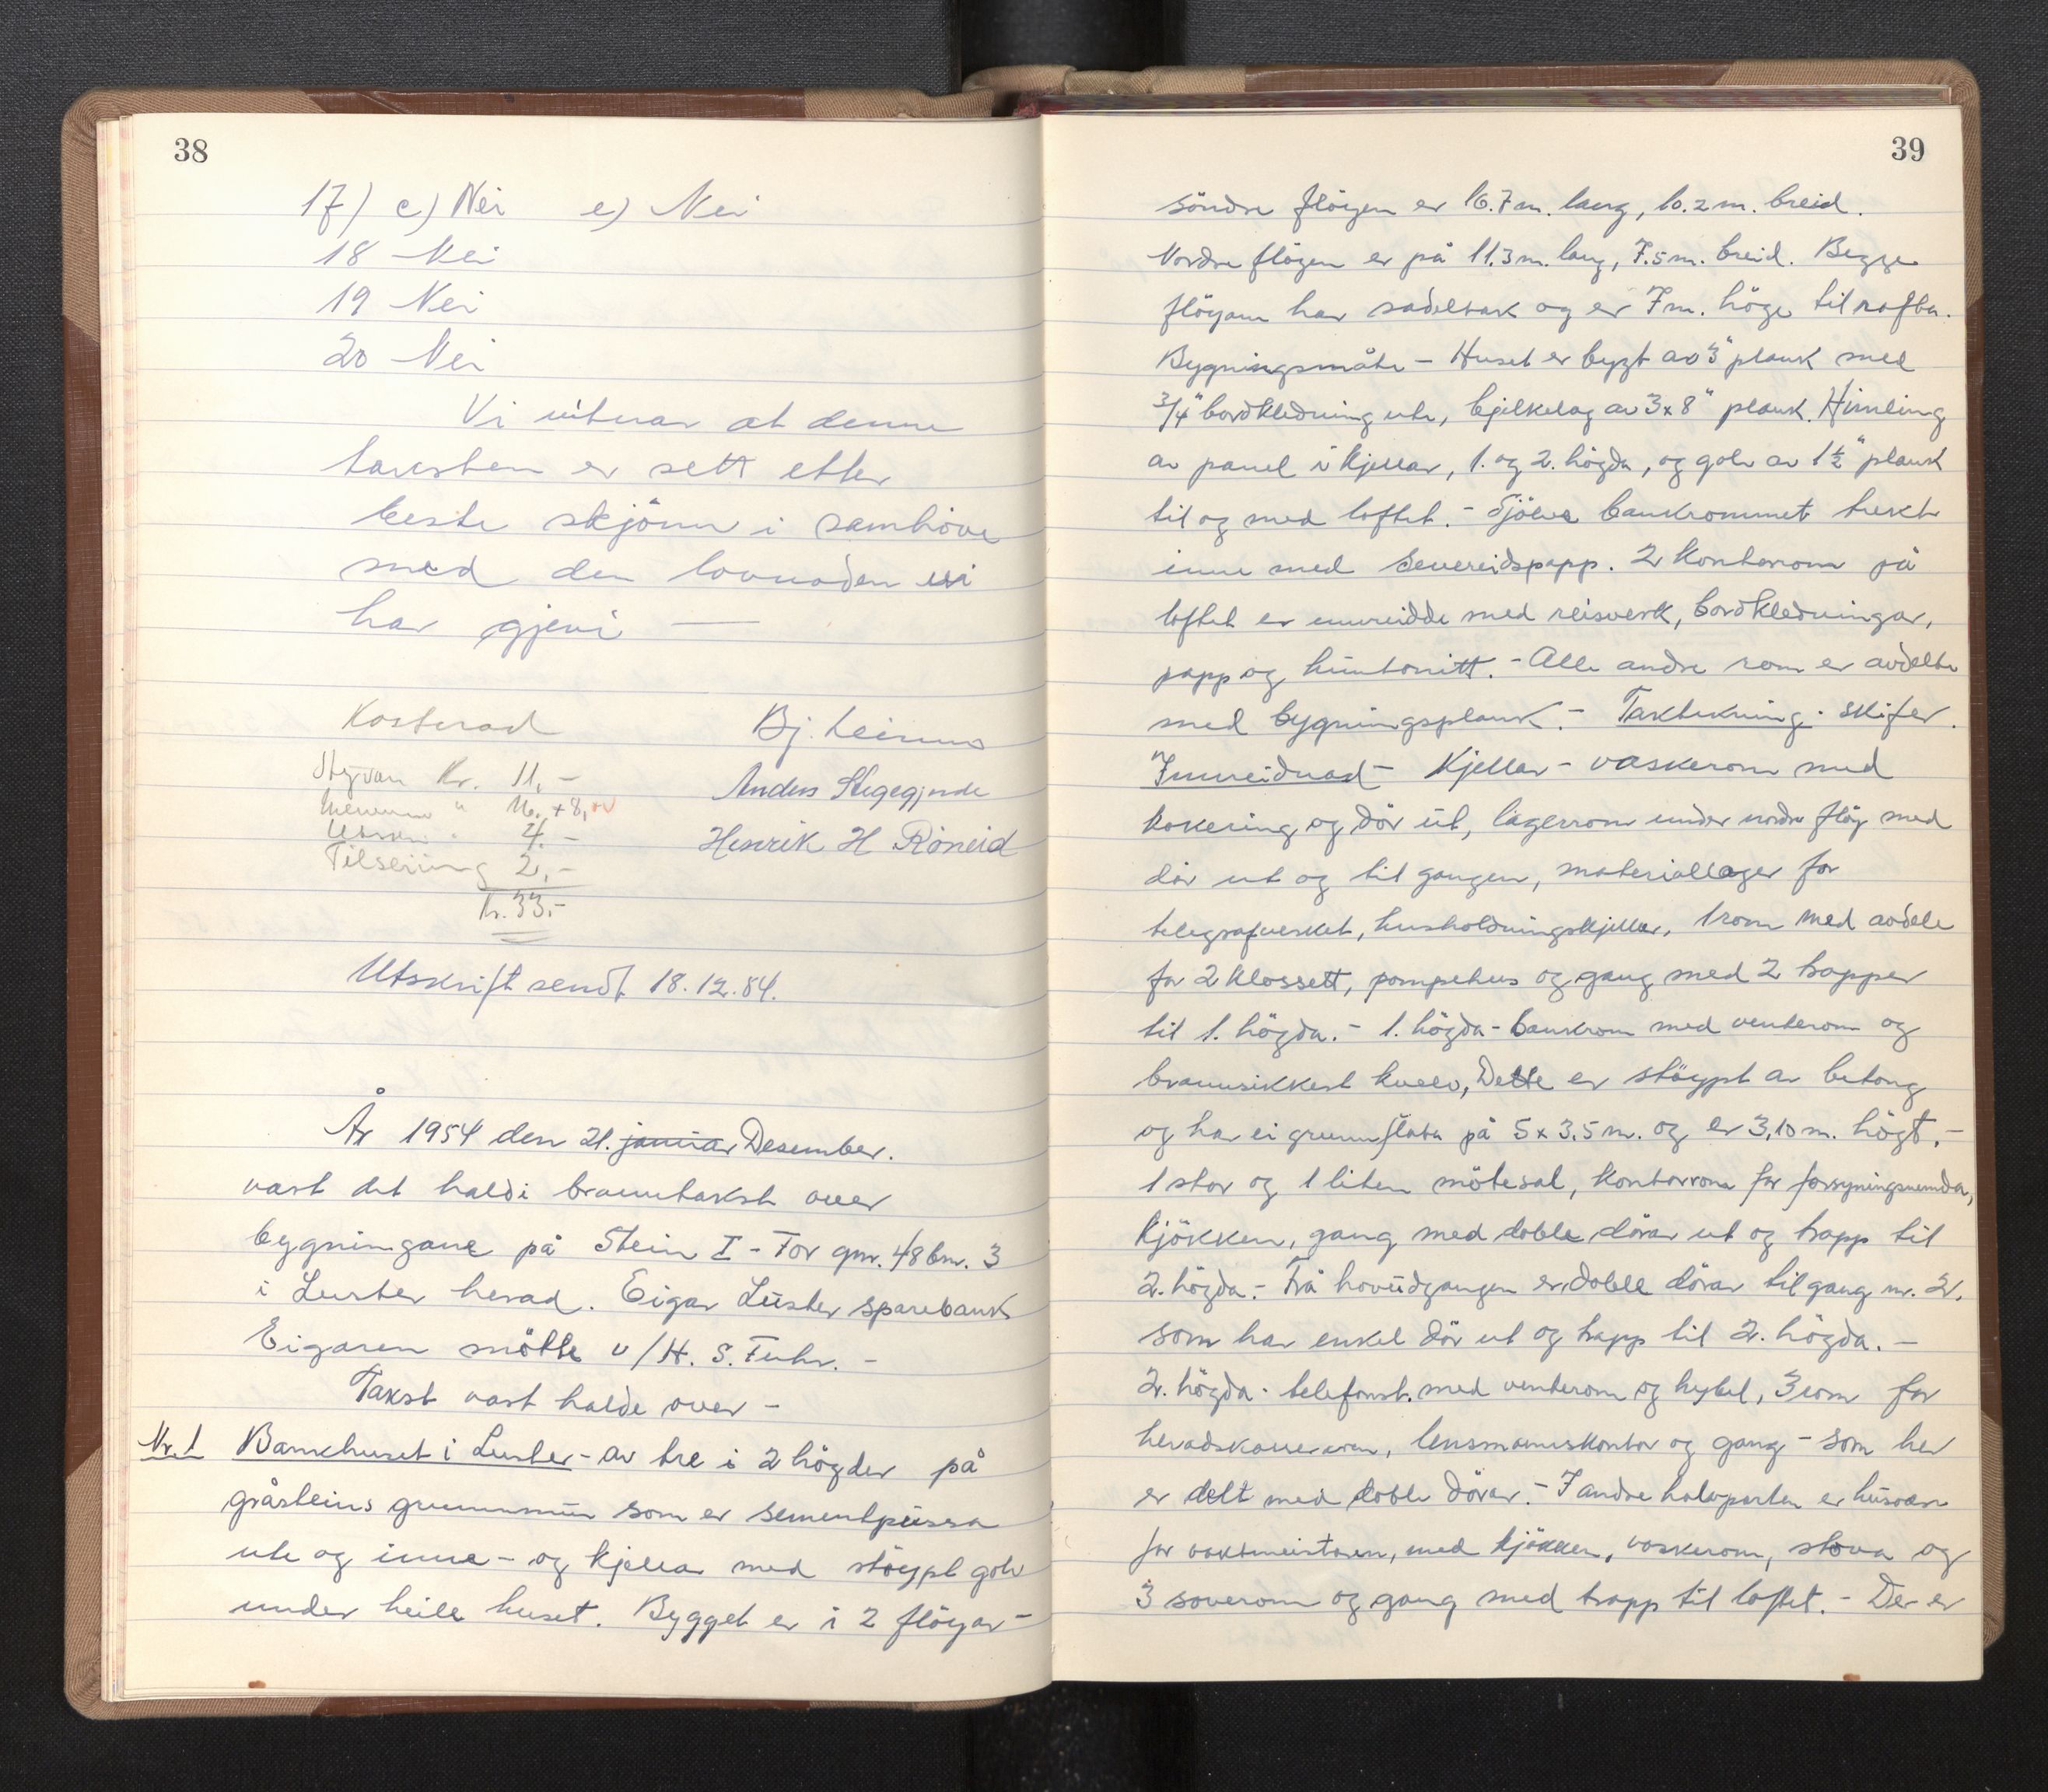 38
17) c) Nei e) Nei
18 Nei
19 Nei
20 Nei
Vi vitnar at denne
taksten er sett etter
beste skjönn i samhöve
med den lovnaden vi
har gjevi —
Kosterad
Styvar Kr. 11,-
" 16. + 8,00
Utskr. " 4.-
Tilseiing 2,-
Kr. 33.-
Bj. Leirmo
Anders Stegegjerde
Henrik H Röneid
Utskrift sendt 18.12.54.
År 1954 den 21. januar Desember.
vart det haldi branntakst over
bygningane på Stein I - Tor gnr. 48 bnr. 3
i Luster herad. Eigar Luster sparebank
Eigaren mötte v/ H. S. Fuhr. -
Takst vart halde over -
Nr. 1 Bankhuset i Luster - av tre i 2 högder på
gråsteins grunnmur som er sementpussa
ute og inne - og kjellar med stöypt golv
under heile huset. Bygget er i 2 flöyar -
39
söndre flöyen er 16.7 m. lang, 10.2 m. breid.
Nordre flögen er på 11.3 m. lang, 7.5 m. breid. Begge
flöyane har sadeltak og er 7 m. höge til rafta.
Bygningsmåte - Huset er bygt av 3" plank med
3/4" bordkledning ute, bjelkelag av 3 x 8" plank. Himling
av panel i kjellar, 1. og 2. högda, og golv av 1 1/2" plank
til og med loftet. - Sjölve bankrommet trekt
inne med Severeidspapp. 2 Kontorrom på
loftet er innreidde med reisverk, bordkledningar,
papp og huntonitt. - Alle andre rom er avdelte
med bygningsplank. - Taktekning - skifer.
Innreidnad - Kjellar - vaskerom med
kokering og dör ut, lagerrom under nordre flöy med
dör ut og til gangen, materiallager for
telegrafverket, husholdningskjellar, 1 rom med avdele
for 2 klossett, pompehus og gang med 2 trapper
til 1. högda. - 1. högda - bankrom med venterom og
brannsikkert kvelv, Dette er stöypt av betong
og har ei grunnflate på 5 x 3.5 m. og er 3,10 m. högt. -
1 stor og 1 liten mötesal, kontorrom for forsyningsnemda,
kjökken, gang med doble dörar ut og trapp til
2. högda. - Frå hovudgangen er doble dörar til gang nr. 2.
som har enkel dör ut og trapp til 2. högda. -
2. högda - telefonst. med venterom og hybel, 3 rom for
heradskasseraren, lensmannskontor og gang - som her
er delt med doble dörar. - I andre halvparten er husvære
for vaktmeistaren, med kjökken, vaskerom, stova og
3 soverom og gang med trapp til loftet. - Der er